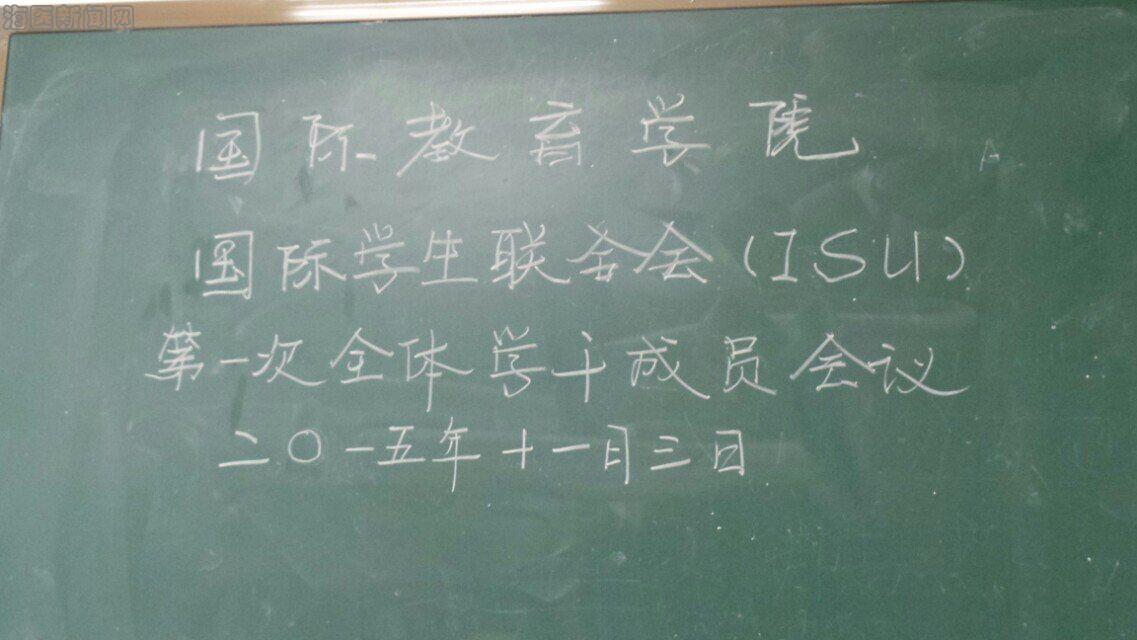 海医新闻网
国际教育学院
国际学生联合会(ISU)
第一次全体学干成员会议
二〇一五年十一月三日